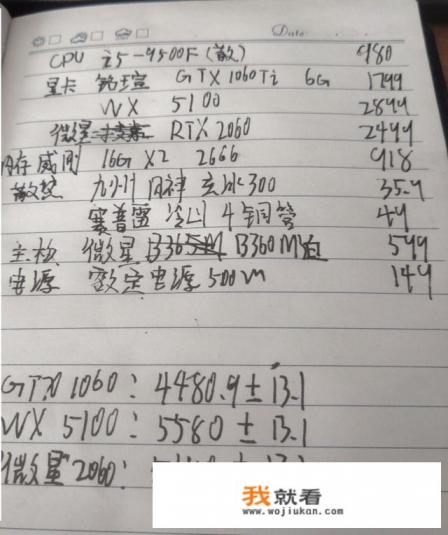 Date
CPU i5-9500F (散) 980
显卡 铭瑄 GTX 1060Ti 6G 1799
WX 5100 2899
微星 RTX 2060 2499
内存 威刚 16G X2 2666 918
散热 九州风神 玄冰300 35.9
赛普雷 冷山 4铜管 49
主板 微星 B365M B360M 599
电源 额定电源 500m 149
GTX 1060: 4480.9 ± 13.1
WX 5100: 5580 ± 13.1
"微星"2060:
我就看
www.wojiukan.com